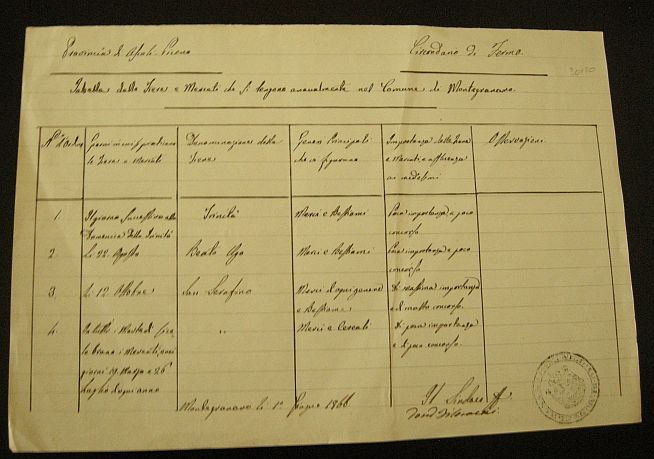 Provincia di Ascoli-Piceno
Circondario di Fermo
Tabella delle Fiere e Mercati che si tengono annualmente nel Comune di Montegranaro
N. d'Ordine
Giorni in cui si praticano le Fiere e Mercati
Denominazione della Fiera
Generi Principali che vi figurano
Importanza delle Fiere e Mercati e affluenza ai medesimi
Osservazioni
1
Il giorno successivo alla
Trinità
Merci e Bestiami
Poca importanza e poco
Domenica della Trinità
concorso
2
Li 22 Agosto
Beato Ugo
Merci e Bestiami
Poca importanza e poco
concorso
3
Li 12 Ottobre
San Serafino
Merci d'ogni genere
Di massima importanza
e Bestiame
e di molto concorso
4
In tutti i Martedì
"
Merci e Cereali
Di poca importanza
e di poco concorso
giorni 19 Marzo e 26
Luglio d'ogni anno
Montegranaro li 1° Giugno 1866
Il Sindaco